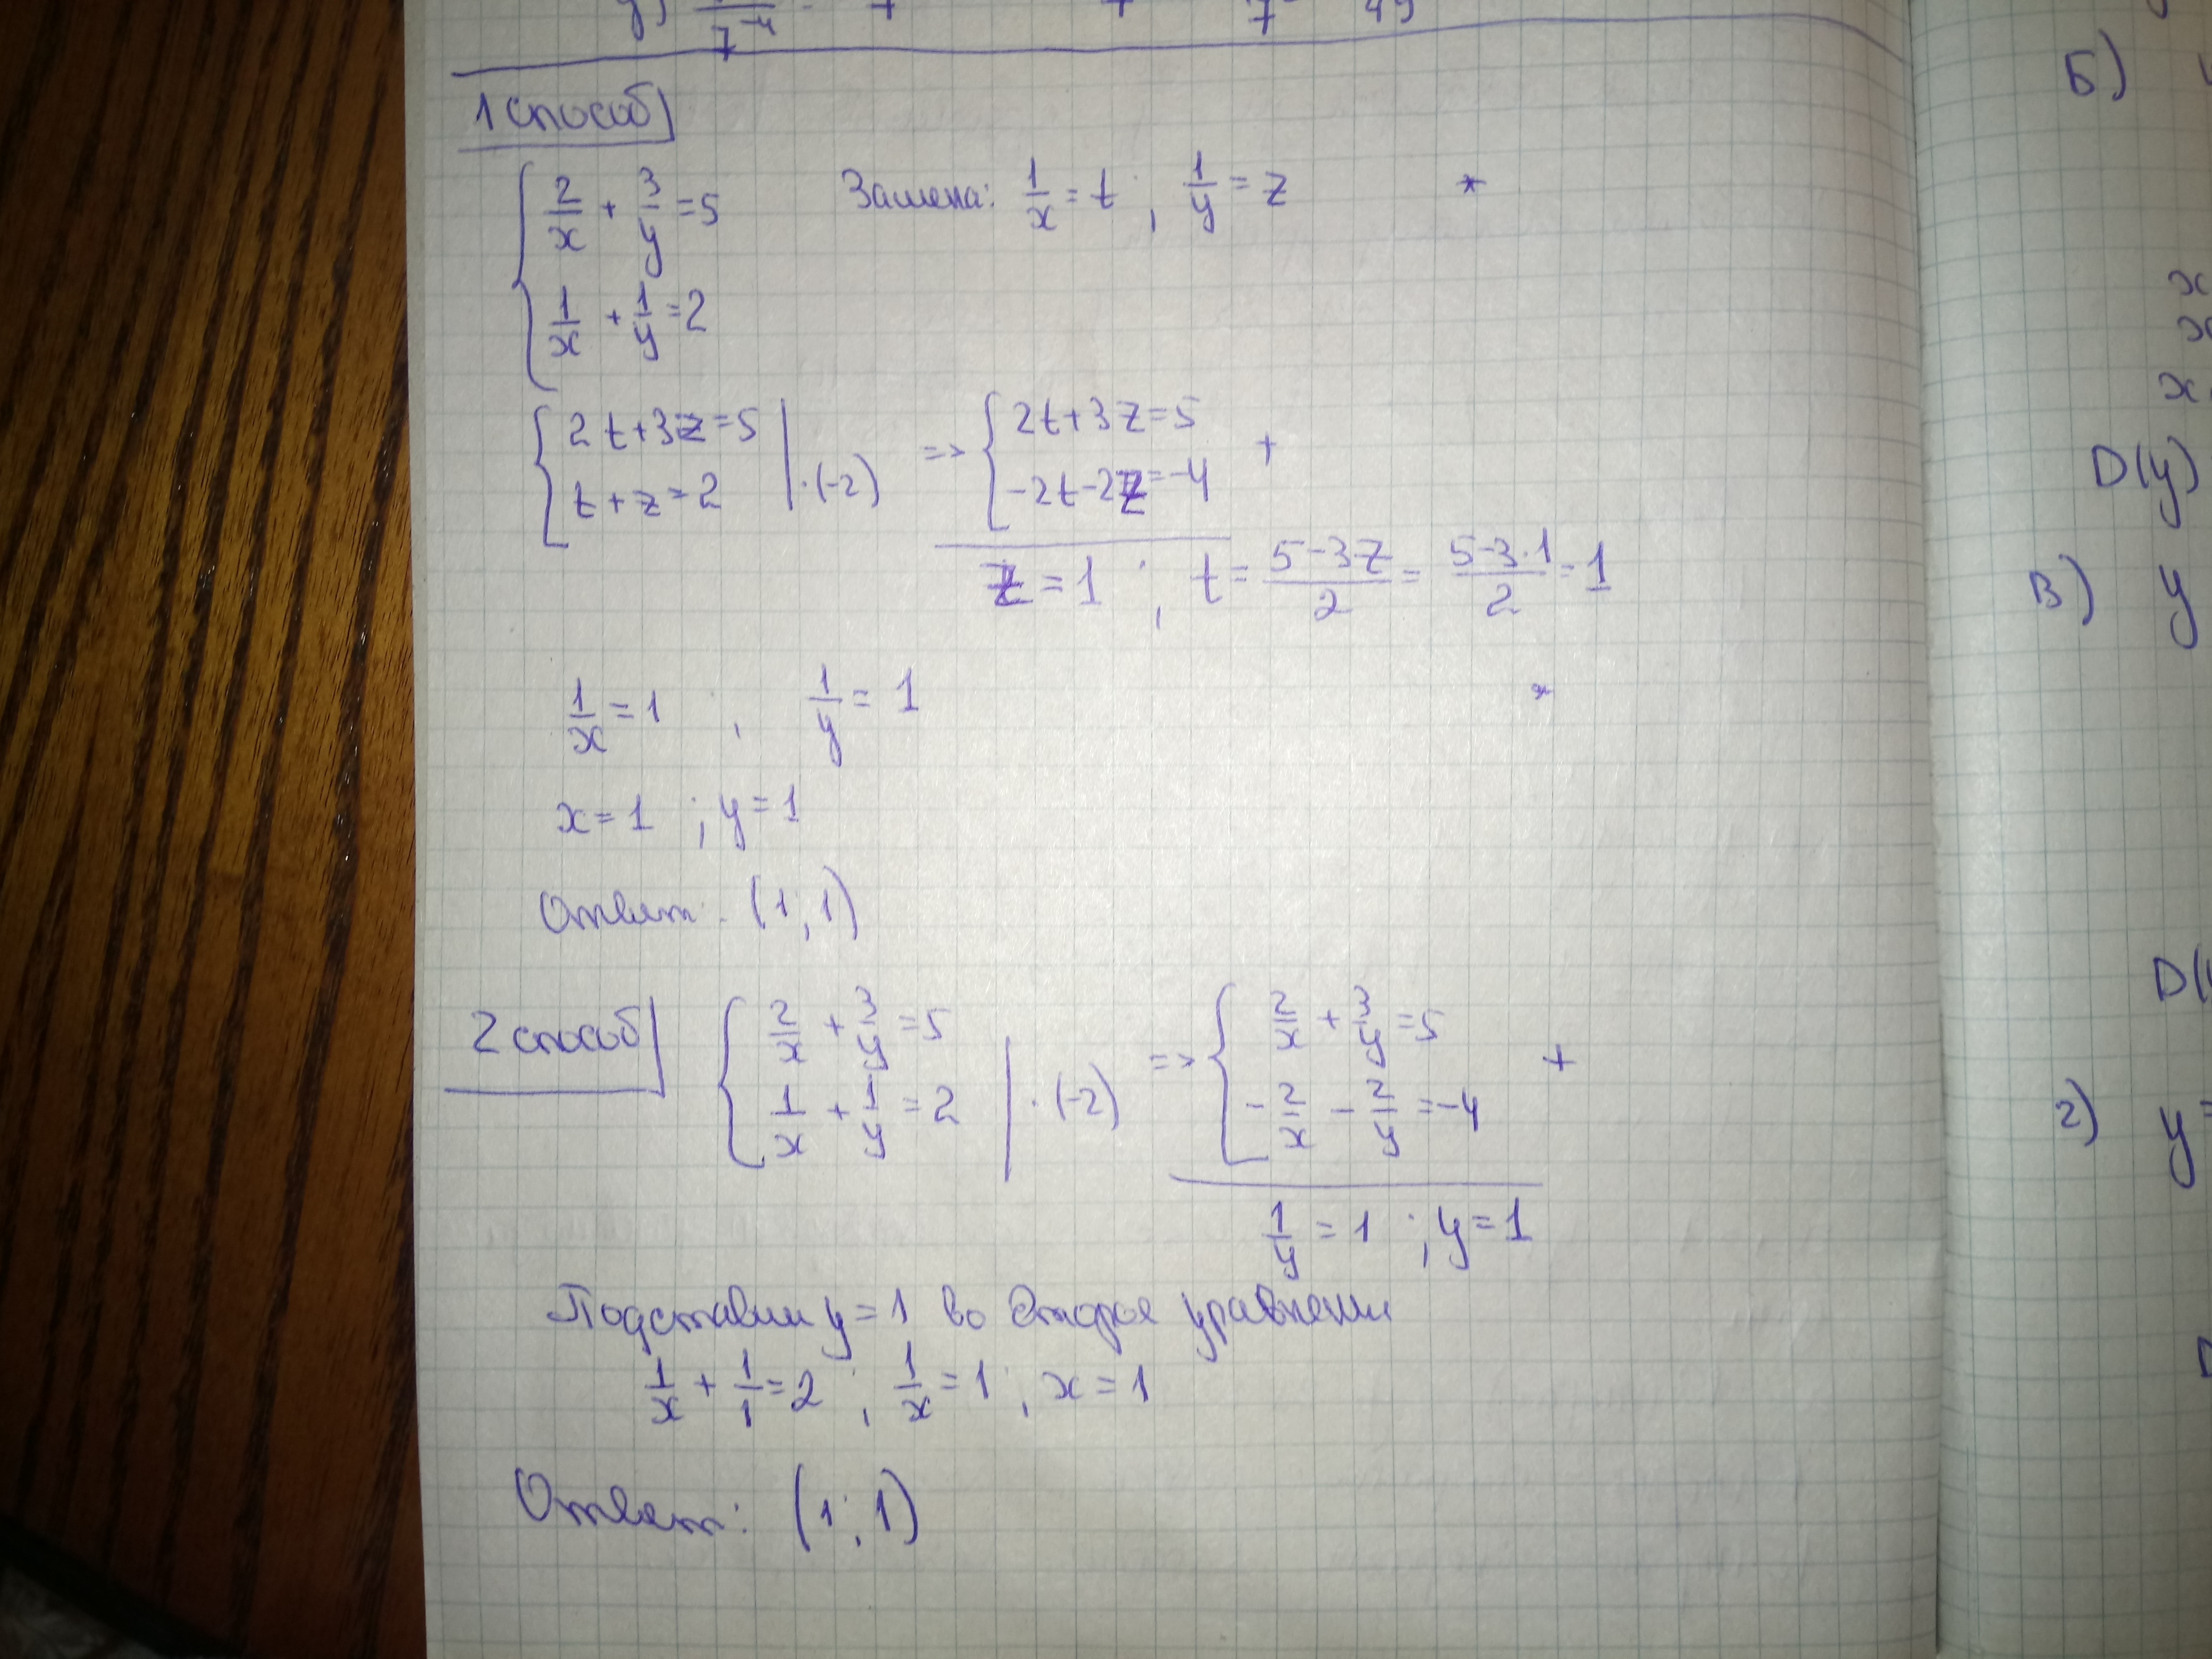 7⁻⁴ 7 49
1 способ
2/x + 3/y = 5 Замена: 1/x = t ; 1/y = z *
1/x + 1/y = 2
2t+3z=5 => 2t+3z=5 +
t+z=2 |·(-2) -2t-2z=-4
z=1 ; t= (5-3z)/2 = (5-3·1)/2 =1
1/x = 1 ; 1/y = 1 *
x=1 ; y=1
Ответ: (1;1)
2 способ 2/x + 3/y = 5 => 2/x + 3/y = 5 +
1/x + 1/y = 2 |·(-2) -2/x - 2/y = -4
1/y = 1 ; y=1
Подставим y=1 во второе уравнение
1/x + 1/1 = 2 ; 1/x = 1 ; x=1
Ответ: (1;1)
Б)
x
x
x
D(y)
В) y
D(
2) y=